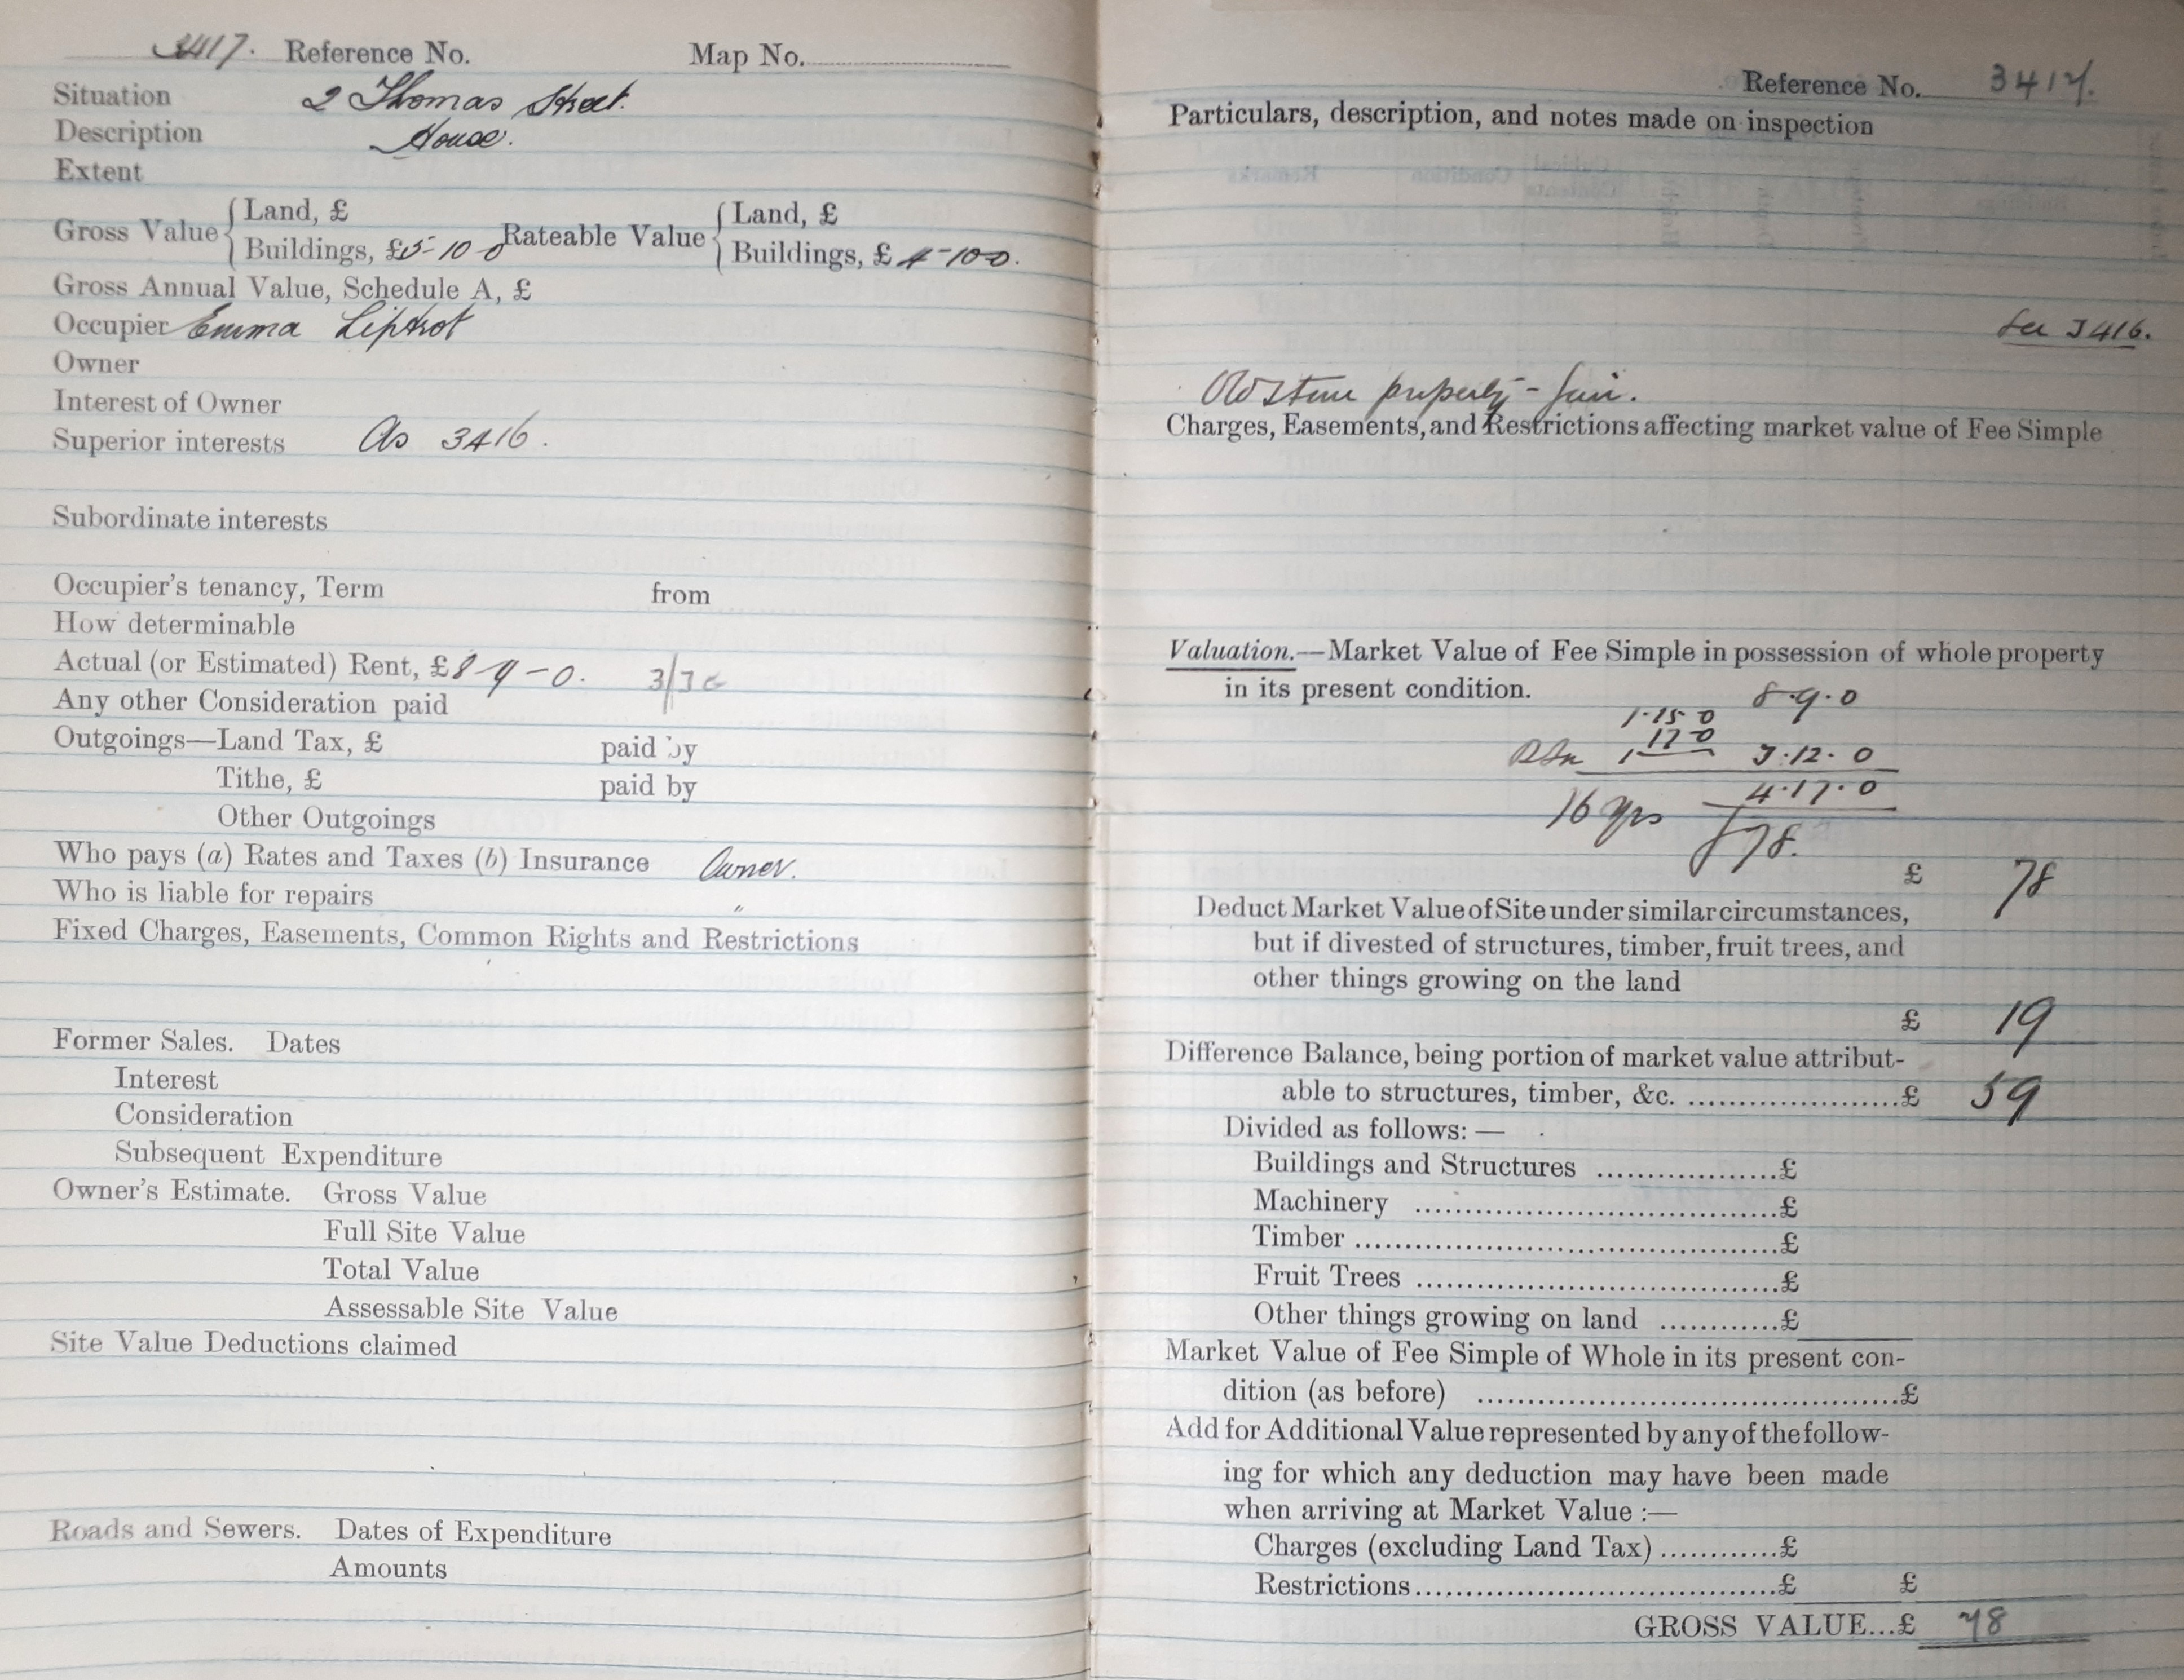 3417. Reference No. Map No.
Situation 2 Thomas Street.
Description House.
Extent
Gross Value { Land, £ Rateable Value { Land, £
Buildings, £5-10-0 Buildings, £4-10-0.
Gross Annual Value, Schedule A, £
Occupier Emma Liptrot
Owner
Interest of Owner
Superior interests As 3416.
Subordinate interests
Occupier's tenancy, Term from
How determinable
Actual (or Estimated) Rent, £8-9-0. 3/3
Any other Consideration paid
Outgoings—Land Tax, £ paid by
Tithe, £ paid by
Other Outgoings
Who pays (a) Rates and Taxes (b) Insurance Owner.
Who is liable for repairs "
Fixed Charges, Easements, Common Rights and Restrictions
Former Sales. Dates
Interest
Consideration
Subsequent Expenditure
Owner's Estimate. Gross Value
Full Site Value
Total Value
Assessable Site Value
Site Value Deductions claimed
Roads and Sewers. Dates of Expenditure
Amounts
Reference No. 3417.
Particulars, description, and notes made on inspection
See 3416.
Old stone property - fair.
Charges, Easements, and Restrictions affecting market value of Fee Simple
Valuation.—Market Value of Fee Simple in possession of whole property
in its present condition. 8.9.0
1.15 0
17 0
1 3.12.0
4.17.0
16 yrs
£78.
£ 78
Deduct Market Value of Site under similar circumstances,
but if divested of structures, timber, fruit trees, and
other things growing on the land
£ 19
Difference Balance, being portion of market value attribut-
able to structures, timber, &c. ......................£ 59
Divided as follows: —
Buildings and Structures ...................£
Machinery ......................................£
Timber ............................................£
Fruit Trees ......................................£
Other things growing on land ............£
Market Value of Fee Simple of Whole in its present con-
dition (as before) ............................................£
Add for Additional Value represented by any of the follow-
ing for which any deduction may have been made
when arriving at Market Value :—
Charges (excluding Land Tax) ............£
Restrictions ......................................£ £
GROSS VALUE...£ 78